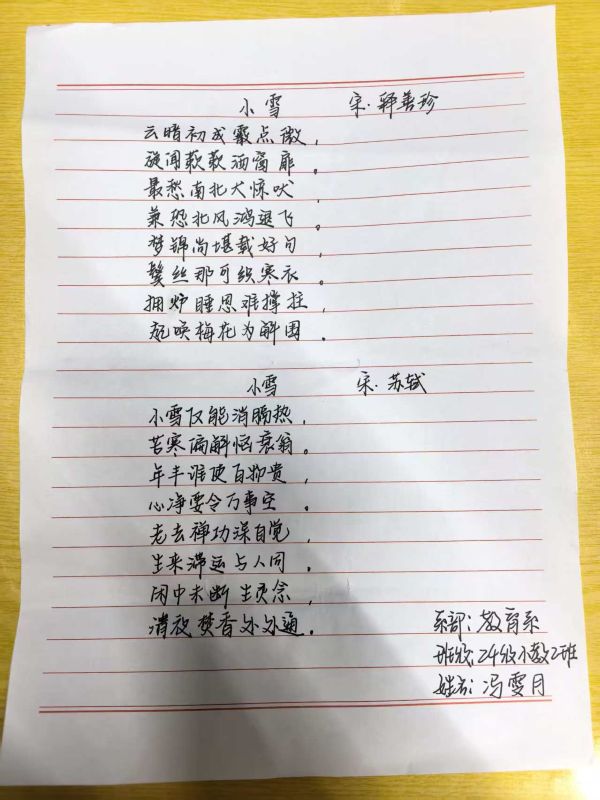 小雪 宋·释善珍
云暗初成霰点微,
旋闻蔌蔌洒窗扉。
最愁南北犬惊吠,
兼恐北风鸿退飞。
梦锦尚堪裁好句,
鬓丝那可织寒衣。
拥炉睡思难撑拄,
起唤梅花为解围。
小雪 宋·苏轼
小雪仅能消膈热,
苦寒偏解恼衰翁。
年丰谁使百物贵,
心净要令万事空。
老去禅功深自觉,
生来滞运与人同。
闲中未断生灵念,
清夜焚香处处通。
系部:教育系
班级:24级小教2班
姓名:冯雪月